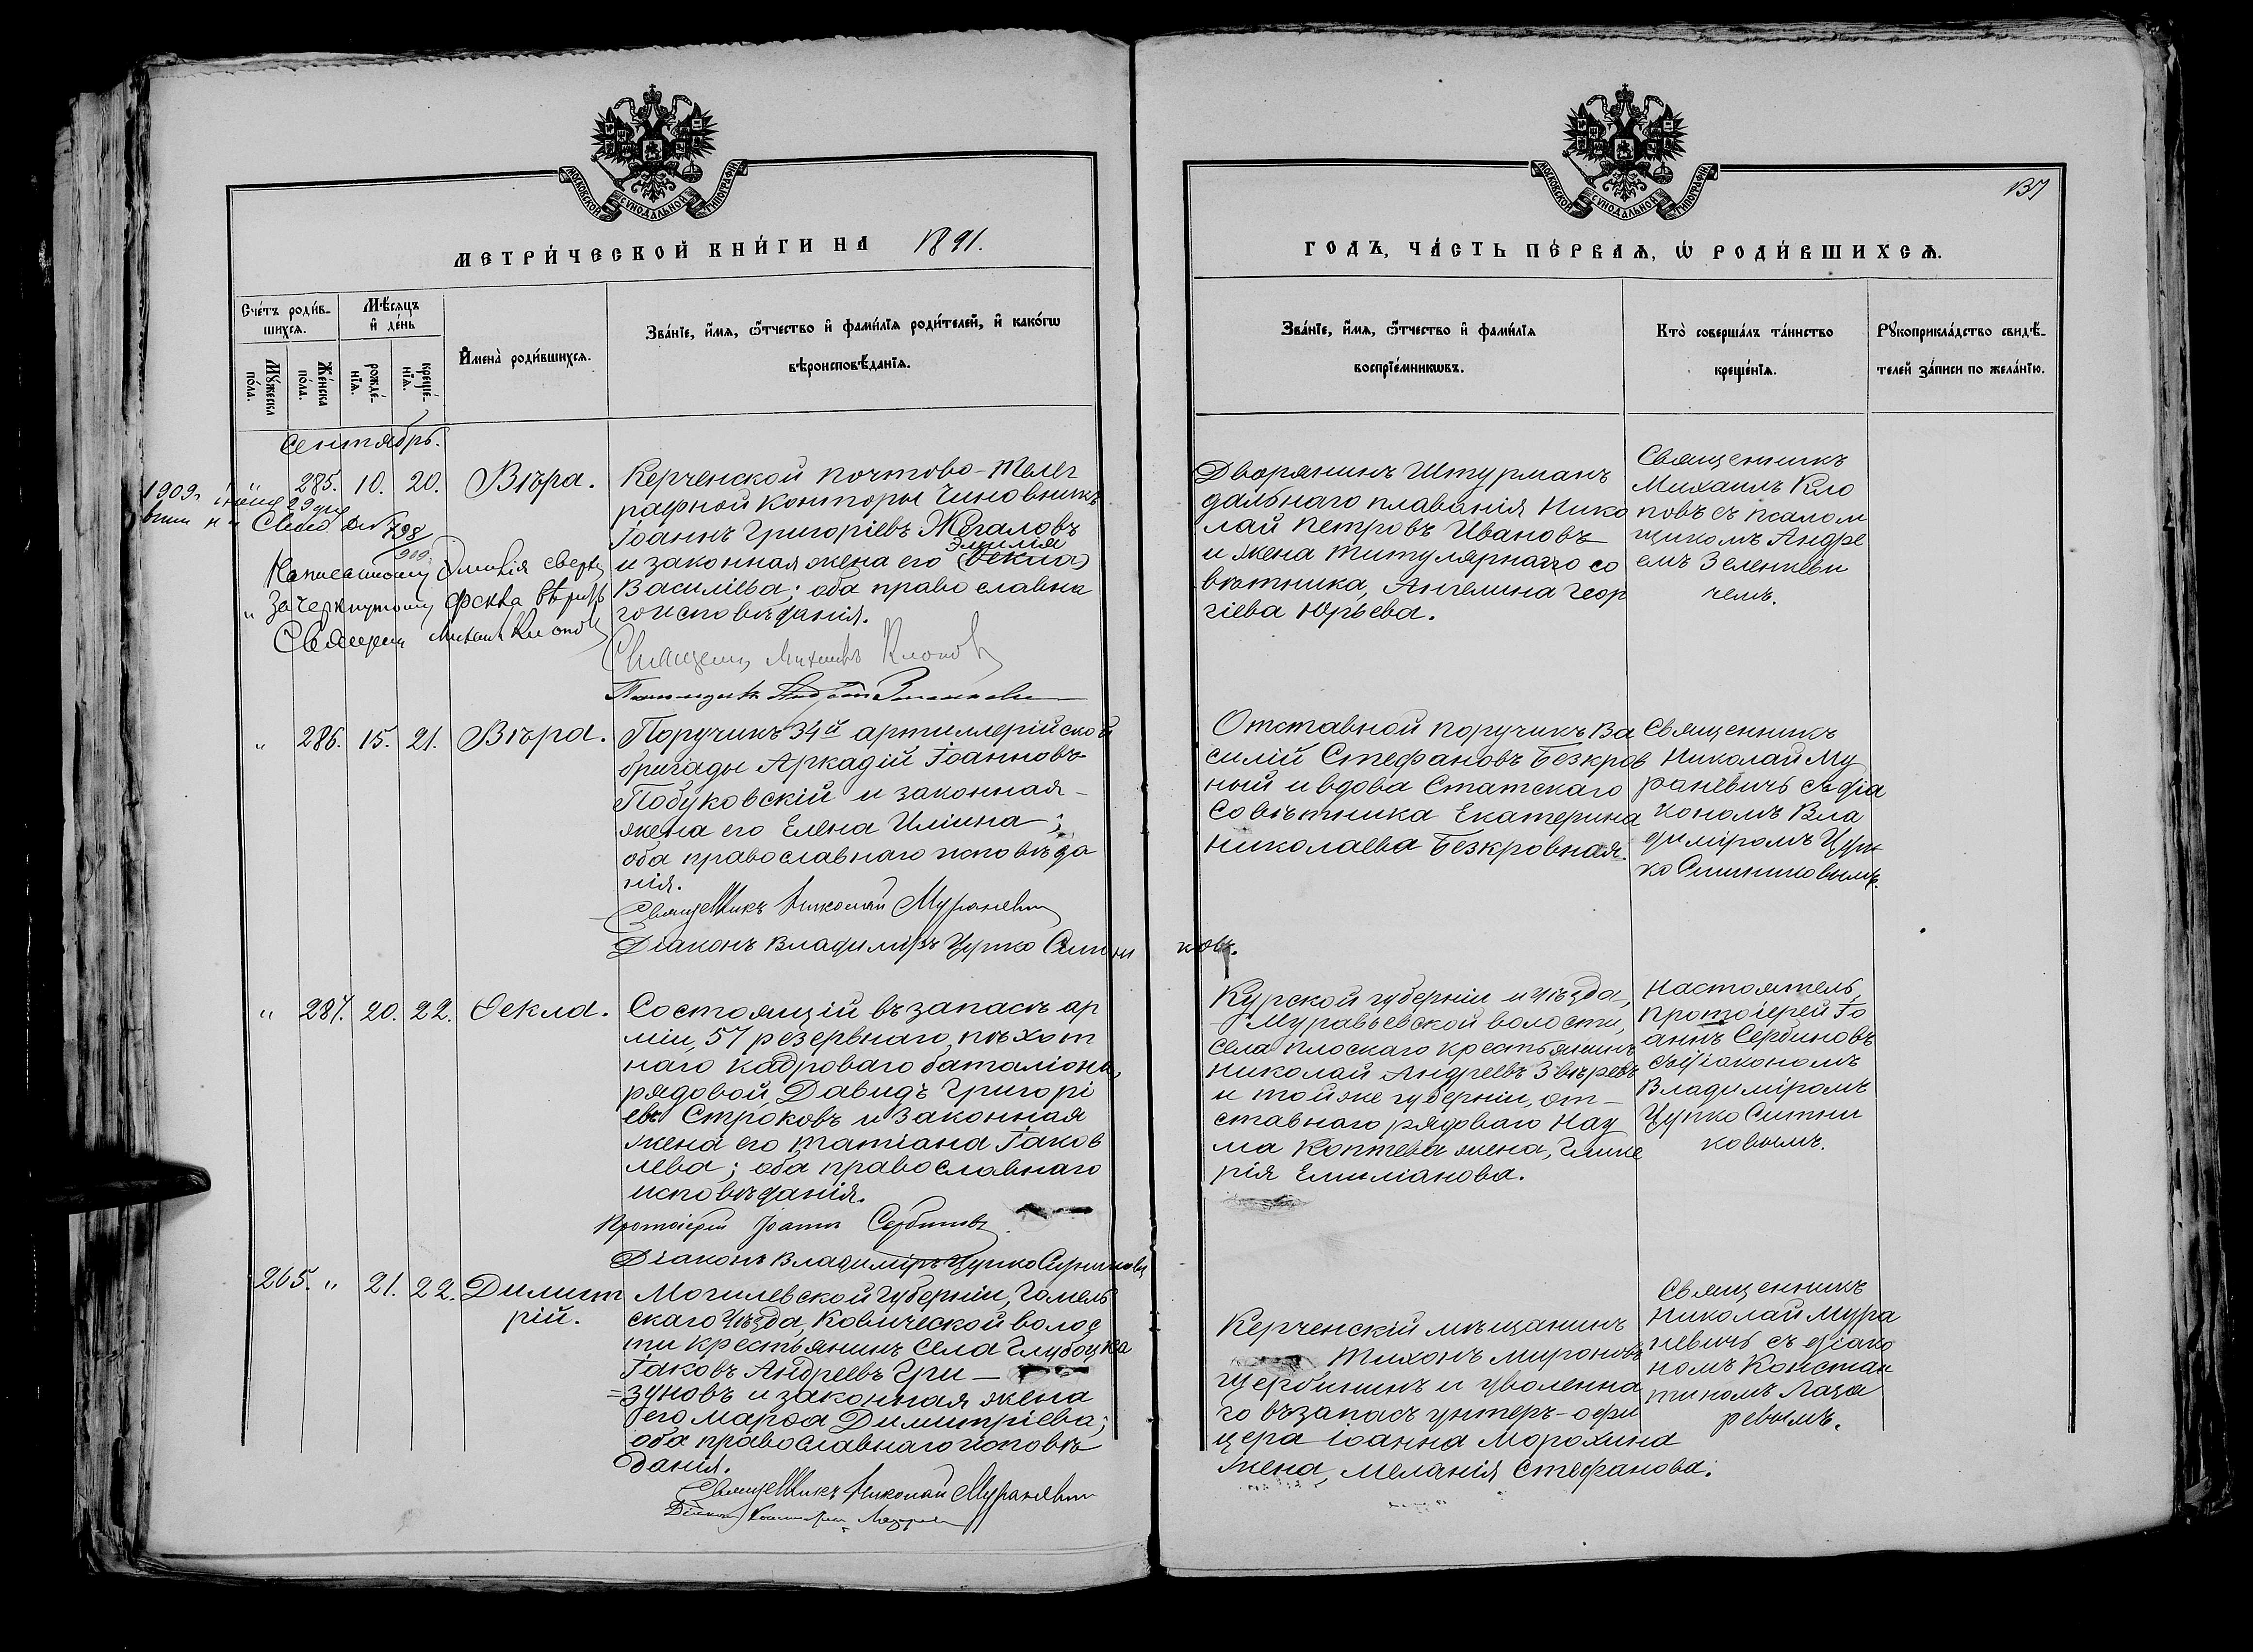 МОСКОВСКОЙ СѴНОДАЛЬНОЙ ТИПОГРАФІИ
МЕТРИ́ЧЕСКОЙ КНИ́ГИ НА 1891.
Сче́тъ роди́в-
шихсѧ.
Мѣ́сѧцъ
и҆ де́нь
И҆мена̀ роди́вшихсѧ.
Зва́нїе, и҆́мѧ, ѻ҆́тчество и҆ фами́лїѧ роди́телей, и҆ како́гѡ
вѣроисповѣ́данїѧ.
Мꙋ́жеска
по́ла.
Же́нска
по́ла.
рожде́-
нїѧ.
креще́-
нїѧ.
Сентябрь.
285. 10. 20. Вѣра.
Керченской почтово-телег
рафной конторы чиновникъ
Іоаннъ Григоріевъ Жегаловъ
Эмилія
и законная жена его (Ѳекла)
Василіева; оба православна
го исповѣданія.
1909 г. іюня 29 дня
Свид. № 798
909
Написанному Эмилія сверху
зачеркнутому Ѳекла вѣрить
Священ. Михаилъ Клоповъ
Священ. Михаилъ Клоповъ
Псаломщикъ Андрей Зеленкеви
" 286. 15. 21. Вѣра.
Поручикъ 34й артиллерійской
бригады Аркадій Іоанновъ
Побуковскій и законная
жена его Елена Иліина;
оба православнаго исповѣда
нія.
Священникъ Николай Мураневич
Діаконъ Владиміръ Цупко Ситни ковъ.
" 287. 20. 22. Ѳекла.
Состоящій въ запасѣ ар
міи, 57 резервнаго пѣхот
наго кадроваго баталіона,
рядовой Давидъ Григорі
евъ Строковъ и законная
жена его Татіана Іаков
лева; оба православнаго
исповѣданія.
Протоіерей Іоаннъ Сербиновъ.
Діаконъ Владиміръ Цупко Ситниковъ
265. " 21. 22. Димит
рій.
Могилевской губерніи, Гомель
скаго уѣзда, Ковической волос
ти крестьянинъ села Глубоцка
Іаковъ Андреевъ Гри-
=зуновъ и законная жена
его Марѳа Димитріева;
оба православнаго исповѣ
данія.
Священникъ Николай Мураневич
Діаконъ Константин Лазарев
МОСКОВСКОЙ СѴНОДАЛЬНОЙ ТИПОГРАФІИ
137
ГОДЪ, ЧА́СТЬ ПЕ́РВАѦ, Ѡ҆ РОДИ́ВШИХСѦ.
Зва́нїе, и҆́мѧ, ѻ҆́тчество и҆ фами́лїѧ
воспрїе́мникѡвъ.
Кто̀ соверша́лъ та́инство
креще́нїѧ.
Рꙋкоприкла́дство свидѣ́-
телей за́писи по жела́нїю.
Дворянинъ Штурманъ
дальнаго плаванія Нико
лай Петровъ Ивановъ
и жена титулярнаго со
вѣтника, Ангелина Геор
гіева Юрьева.
Священникъ
Михаилъ Кло
повъ съ псалом
щикомъ Андре
емъ Зеленкеви
чемъ.
Отставной поручикъ Ва
силій Стефановъ Безкров
ный и вдова Статскаго
Совѣтника Екатерина
Николаева Безкровная.
Священникъ
Николай Му
раневичъ съ діа
кономъ Вла
диміромъ Цуп
ко Ситниковымъ.
Курской губерніи и уѣзда,
Муравьевской волости,
села Плоскаго крестьянинъ
Николай Андреевъ Звѣревъ
и той же губерніи, от-
ставнаго рядоваго Нау
ма Коптева жена, Глике
рія Емиліанова.
Настоятель,
Протоіерей Іо
аннъ Сербиновъ
съ діакономъ
Владиміромъ
Цупко Ситни
ковымъ.
Керченскій мѣщанинъ
Тихонъ Мироновъ
Щербининъ и уволенна
го въ запасъ унтеръ-офи
цера Іоанна Морохина
жена, Меланія Стефанова.
Священникъ
Николай Мура
невичъ съ діако
номъ Констан
тиномъ Лаза
ревымъ.